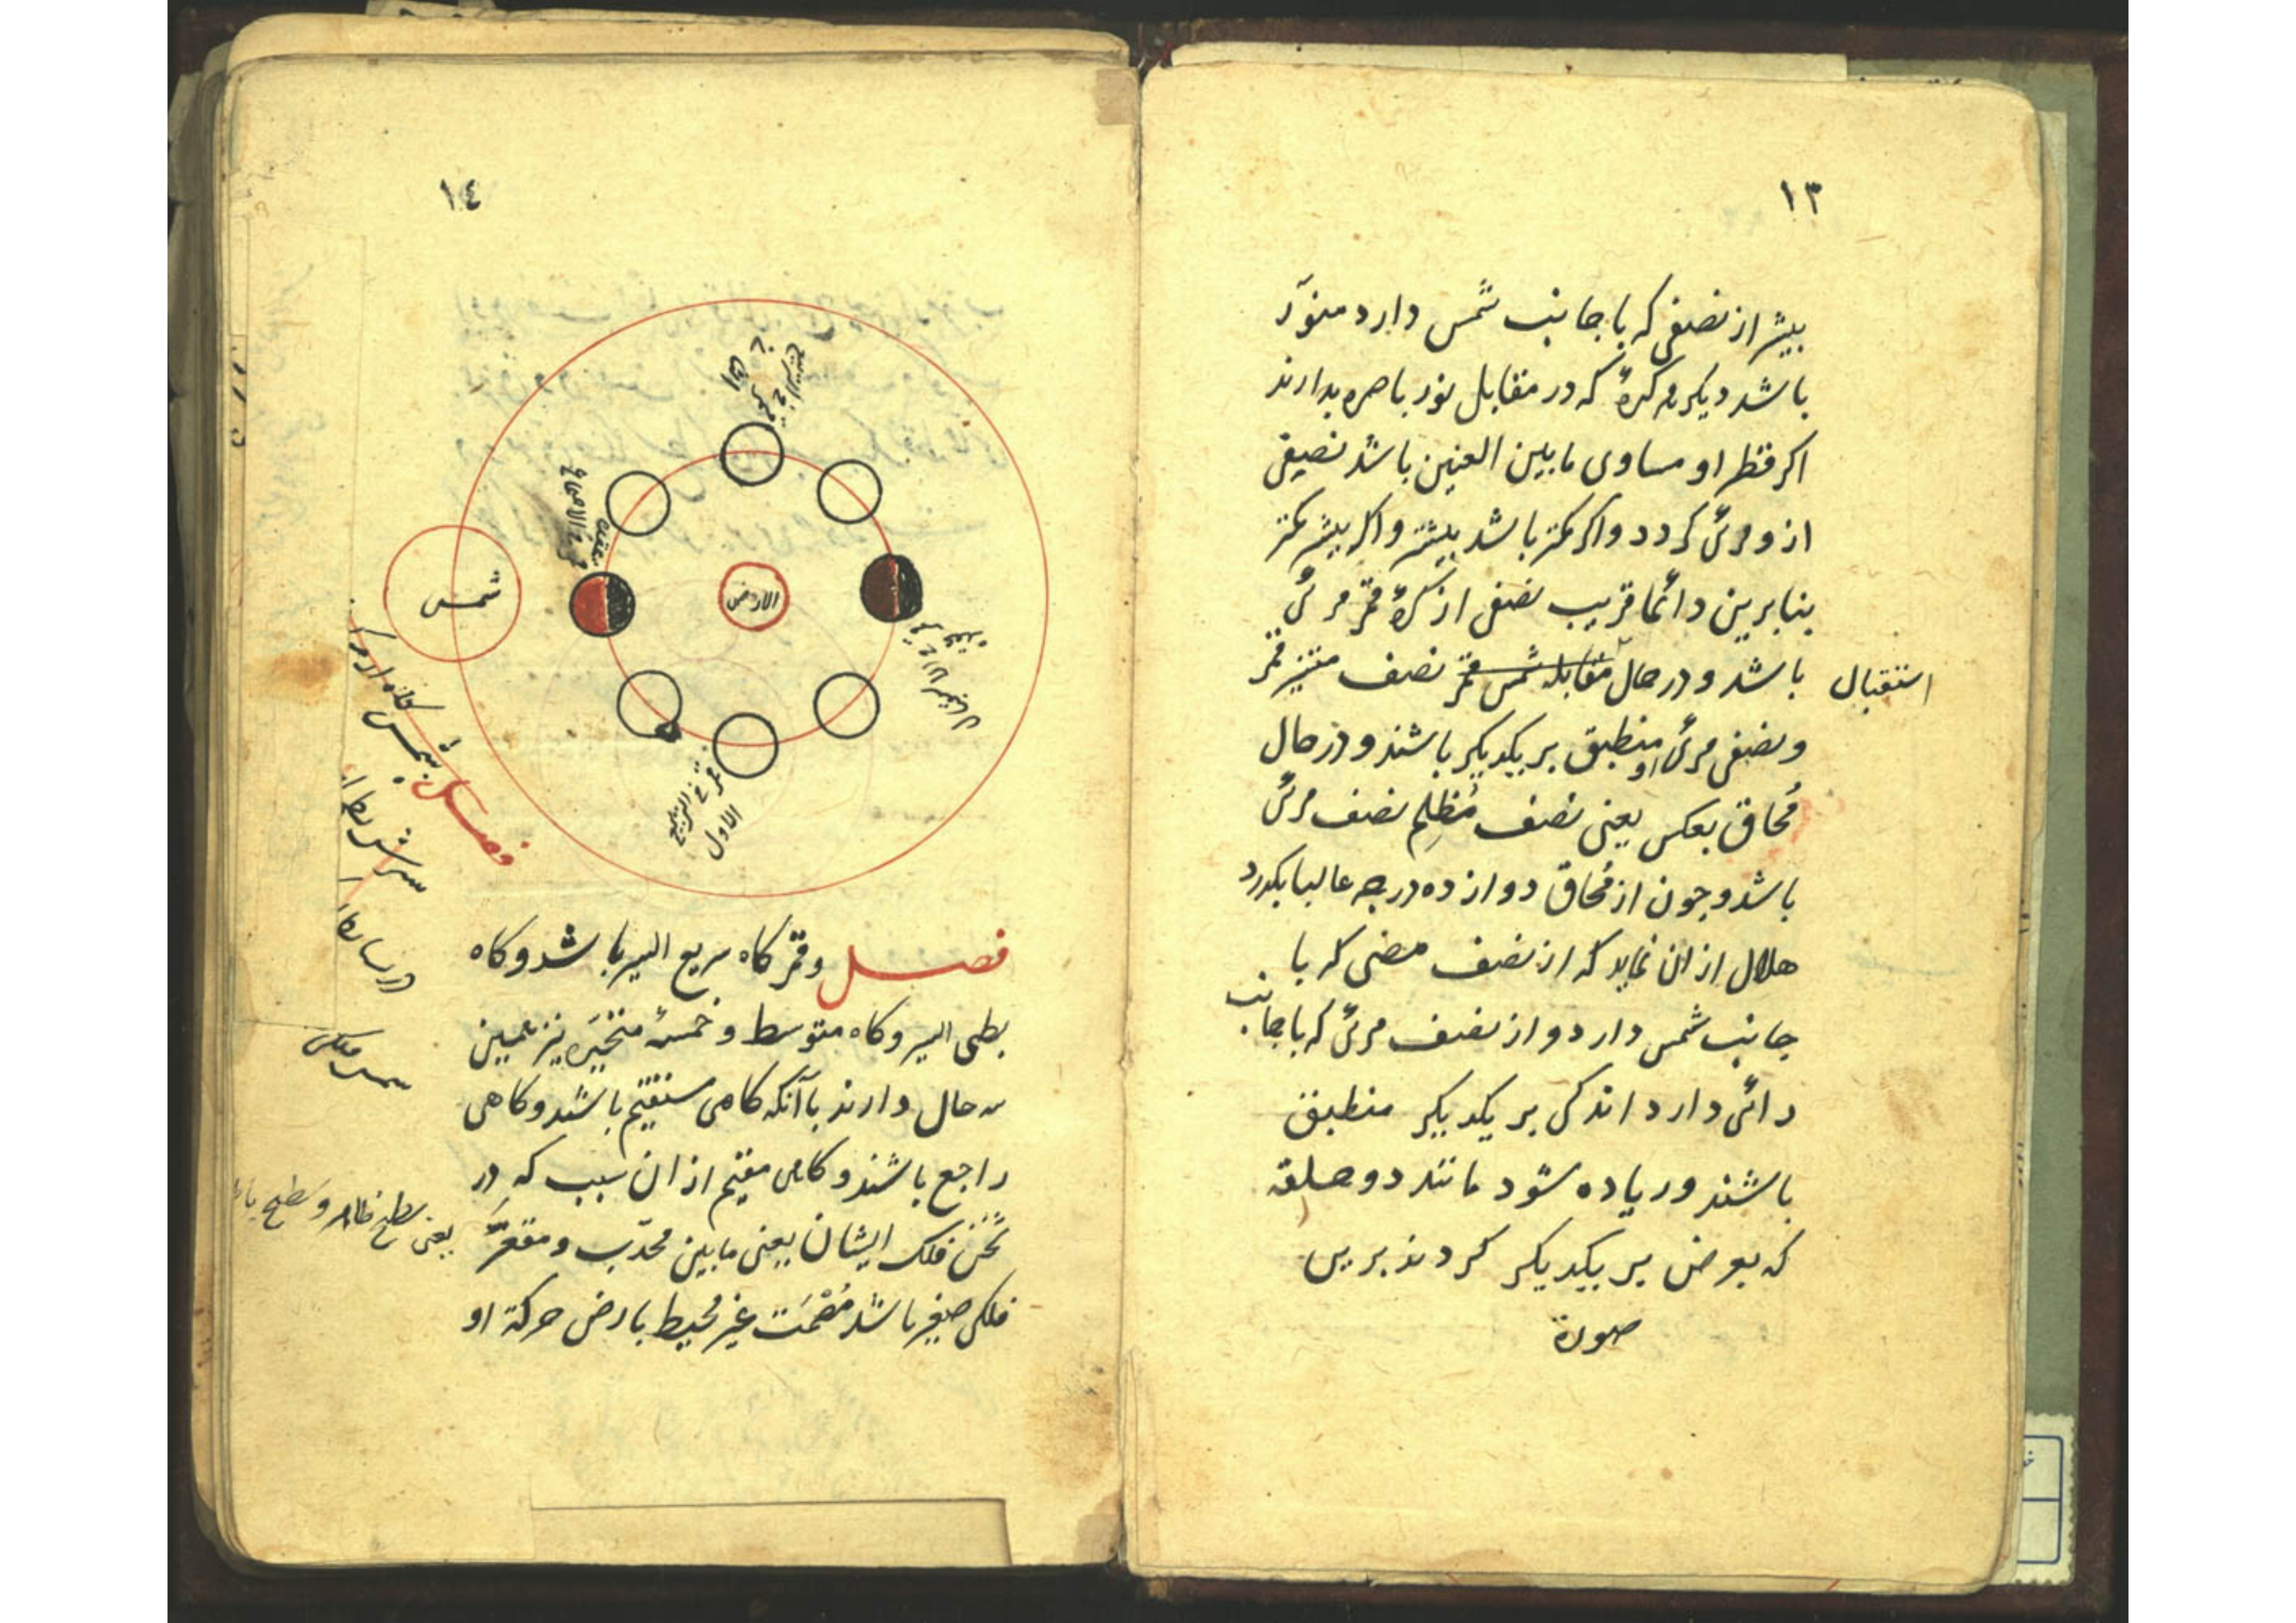 ١٣
بیشتر از نصفی که با جانب شمس دارد منوّر
باشد دیکر هر کرهٔ که در مقابل نور باصره بدارند
اکر قطر او مساوی مابین العینین باشد نصفی
ازو مرئی کردد و اکر کمتر باشد بیشتر و اکر بیشتر کمتر
بنابرین دائما قریب نصفی از کرهٔ قمر مرئی
باشد و در حال مقابله شمس قمر نصف منیر قمر
استقبال
و نصفی مرئی او منطبق بر یکدیکر باشند و در حال
مُحاق بعکس یعنی نصف مُظلِم نصف مرئی
باشد و چون از مُحاق دوازده درجه غالبا بکذرد
هلال از ان نماید که از نصف مضی که با
جانب شمس دارد و از نصف مرئی که با جانب
رائی دارد اندکی بر یکدیکر منطبق
باشند و زیاده شود مانند دو حلقه
که بعرض بر یکدیکر کردند برین
صورة
١٤
شمس
الارض
الاول
فصل و قمر کاه سریع السیر باشد و کاه
بطی السیر و کاه متوسط و خمسهٔ متحیّره نیز همین
سه حال دارند با آنکه کاهی مستقیم باشند و کاهی
راجع باشند و کاهی مقیم از ان سبب که در
ثخن فلک ایشان یعنی مابین محدّب و مقعّر
یعنی سطح ظاهر و سطح
فلکی صغیر باشد مُصْمَت غیر محیط بارض حرکة او
فصل